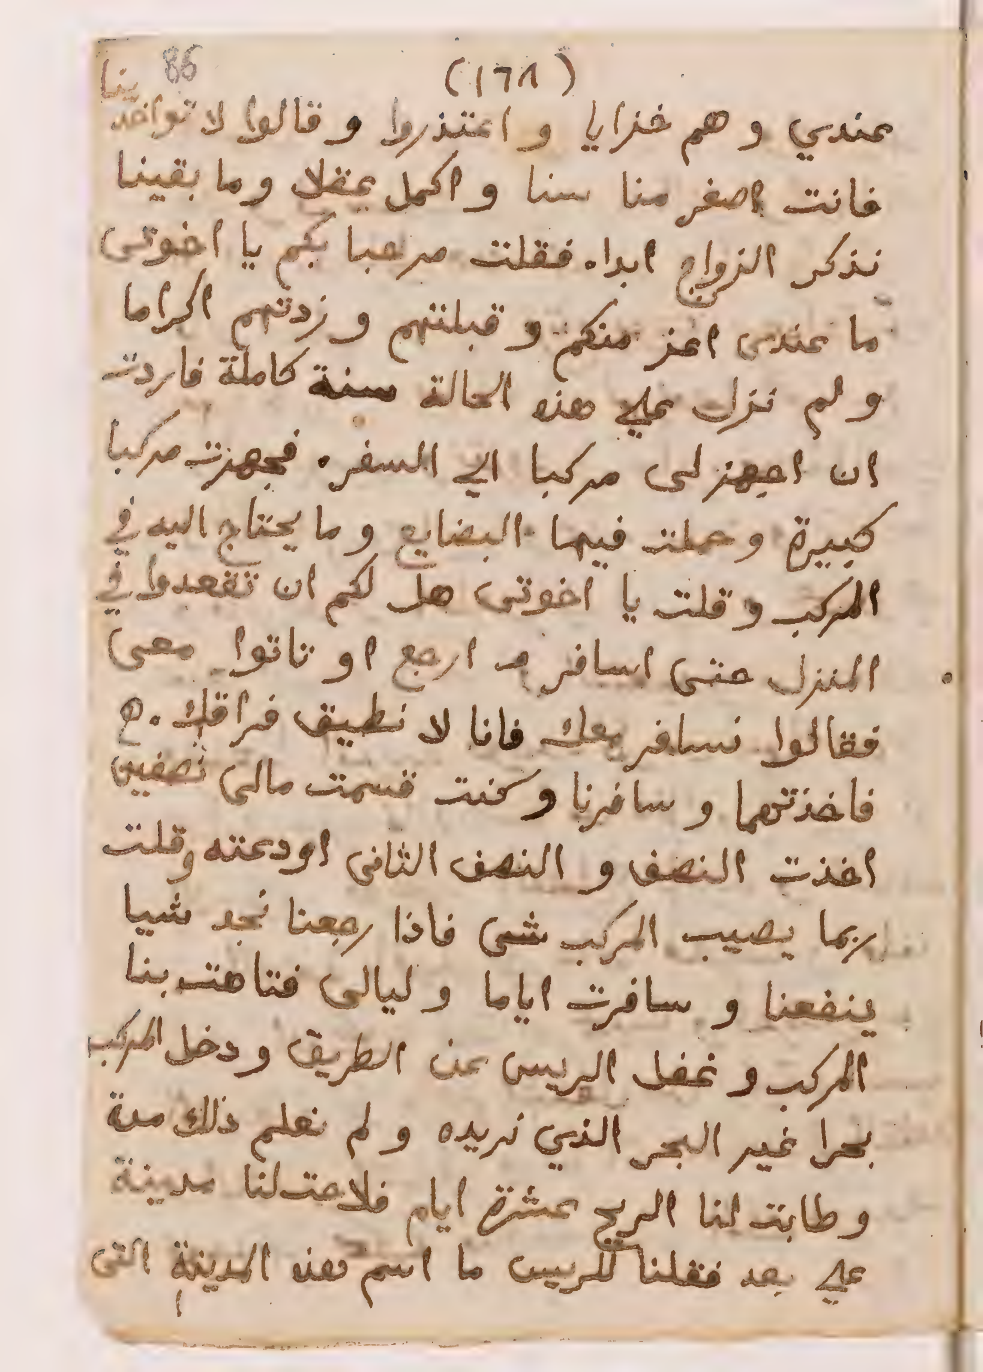 86 (١٦٨)
عندي و هم خزايا و اعتذروا و قالوا لا تواخذينا
فانت اصغر منا سنا و اكمل عقلا وما بقينا
نذكر الزواج ابدا. فقلت مرحبا بكم يا اخوتى
ما عندى اعز منكم و قبلتهم و زدتهم اكراما
و لم نزل علي هذه الحالة سنة كاملة فاردت
ان اجهز لى مركبا الي السفر. فجهزت مركبا
كبيرة و حملت فيها البضايع و ما يحتاج اليه في
المركب و قلت يا اخوتى هل لكم ان تقعدوا في
المنزل حتى اسافر و ارجع او تاتوا معى
فقالوا نسافر معك فانا لا نطيق فراقك.
فاخذتهما و سافرنا و كنت قسمت مالى نصفين
اخذت النصف و النصف الثانى اودعته وقلت
ربما يصيب المركب شى فاذا رجعنا نجد شيا
ينفعنا و سافرت اياما و ليالى فتاهت بنا
المركب و غفل الريس عن الطريق و دخل المركب
بحرا غير البحر الذي نريده و لم نعلم ذلك مدة
و طابت لنا الريح عشرة ايام فلاحت لنا مدينة
علي بعد فقلنا للريس ما اسم هذه المدينة التى